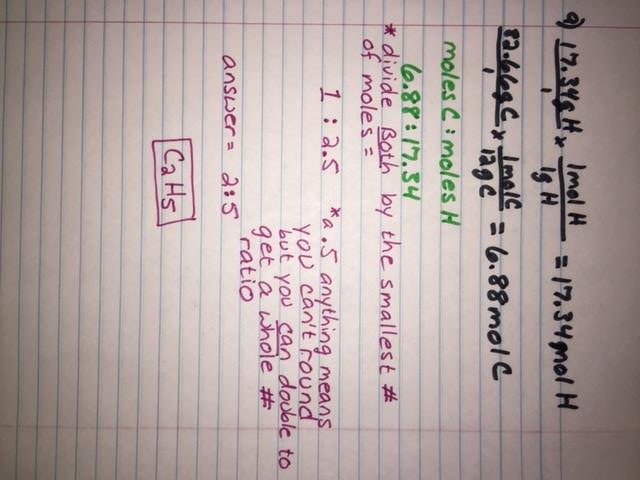 a) 17.34g H/1 * 1mol H/1g H = 17.34 gmol H
82.66g C/1 * 1mol C/12g C = 6.88 mol C
moles C : moles H
6.88 : 17.34
* divide Both by the smallest #
of moles =
1 : 2.5 *a .5 anything means
you can't round
but you can double to
get a whole #
ratio
answer = 2:5
C2H5